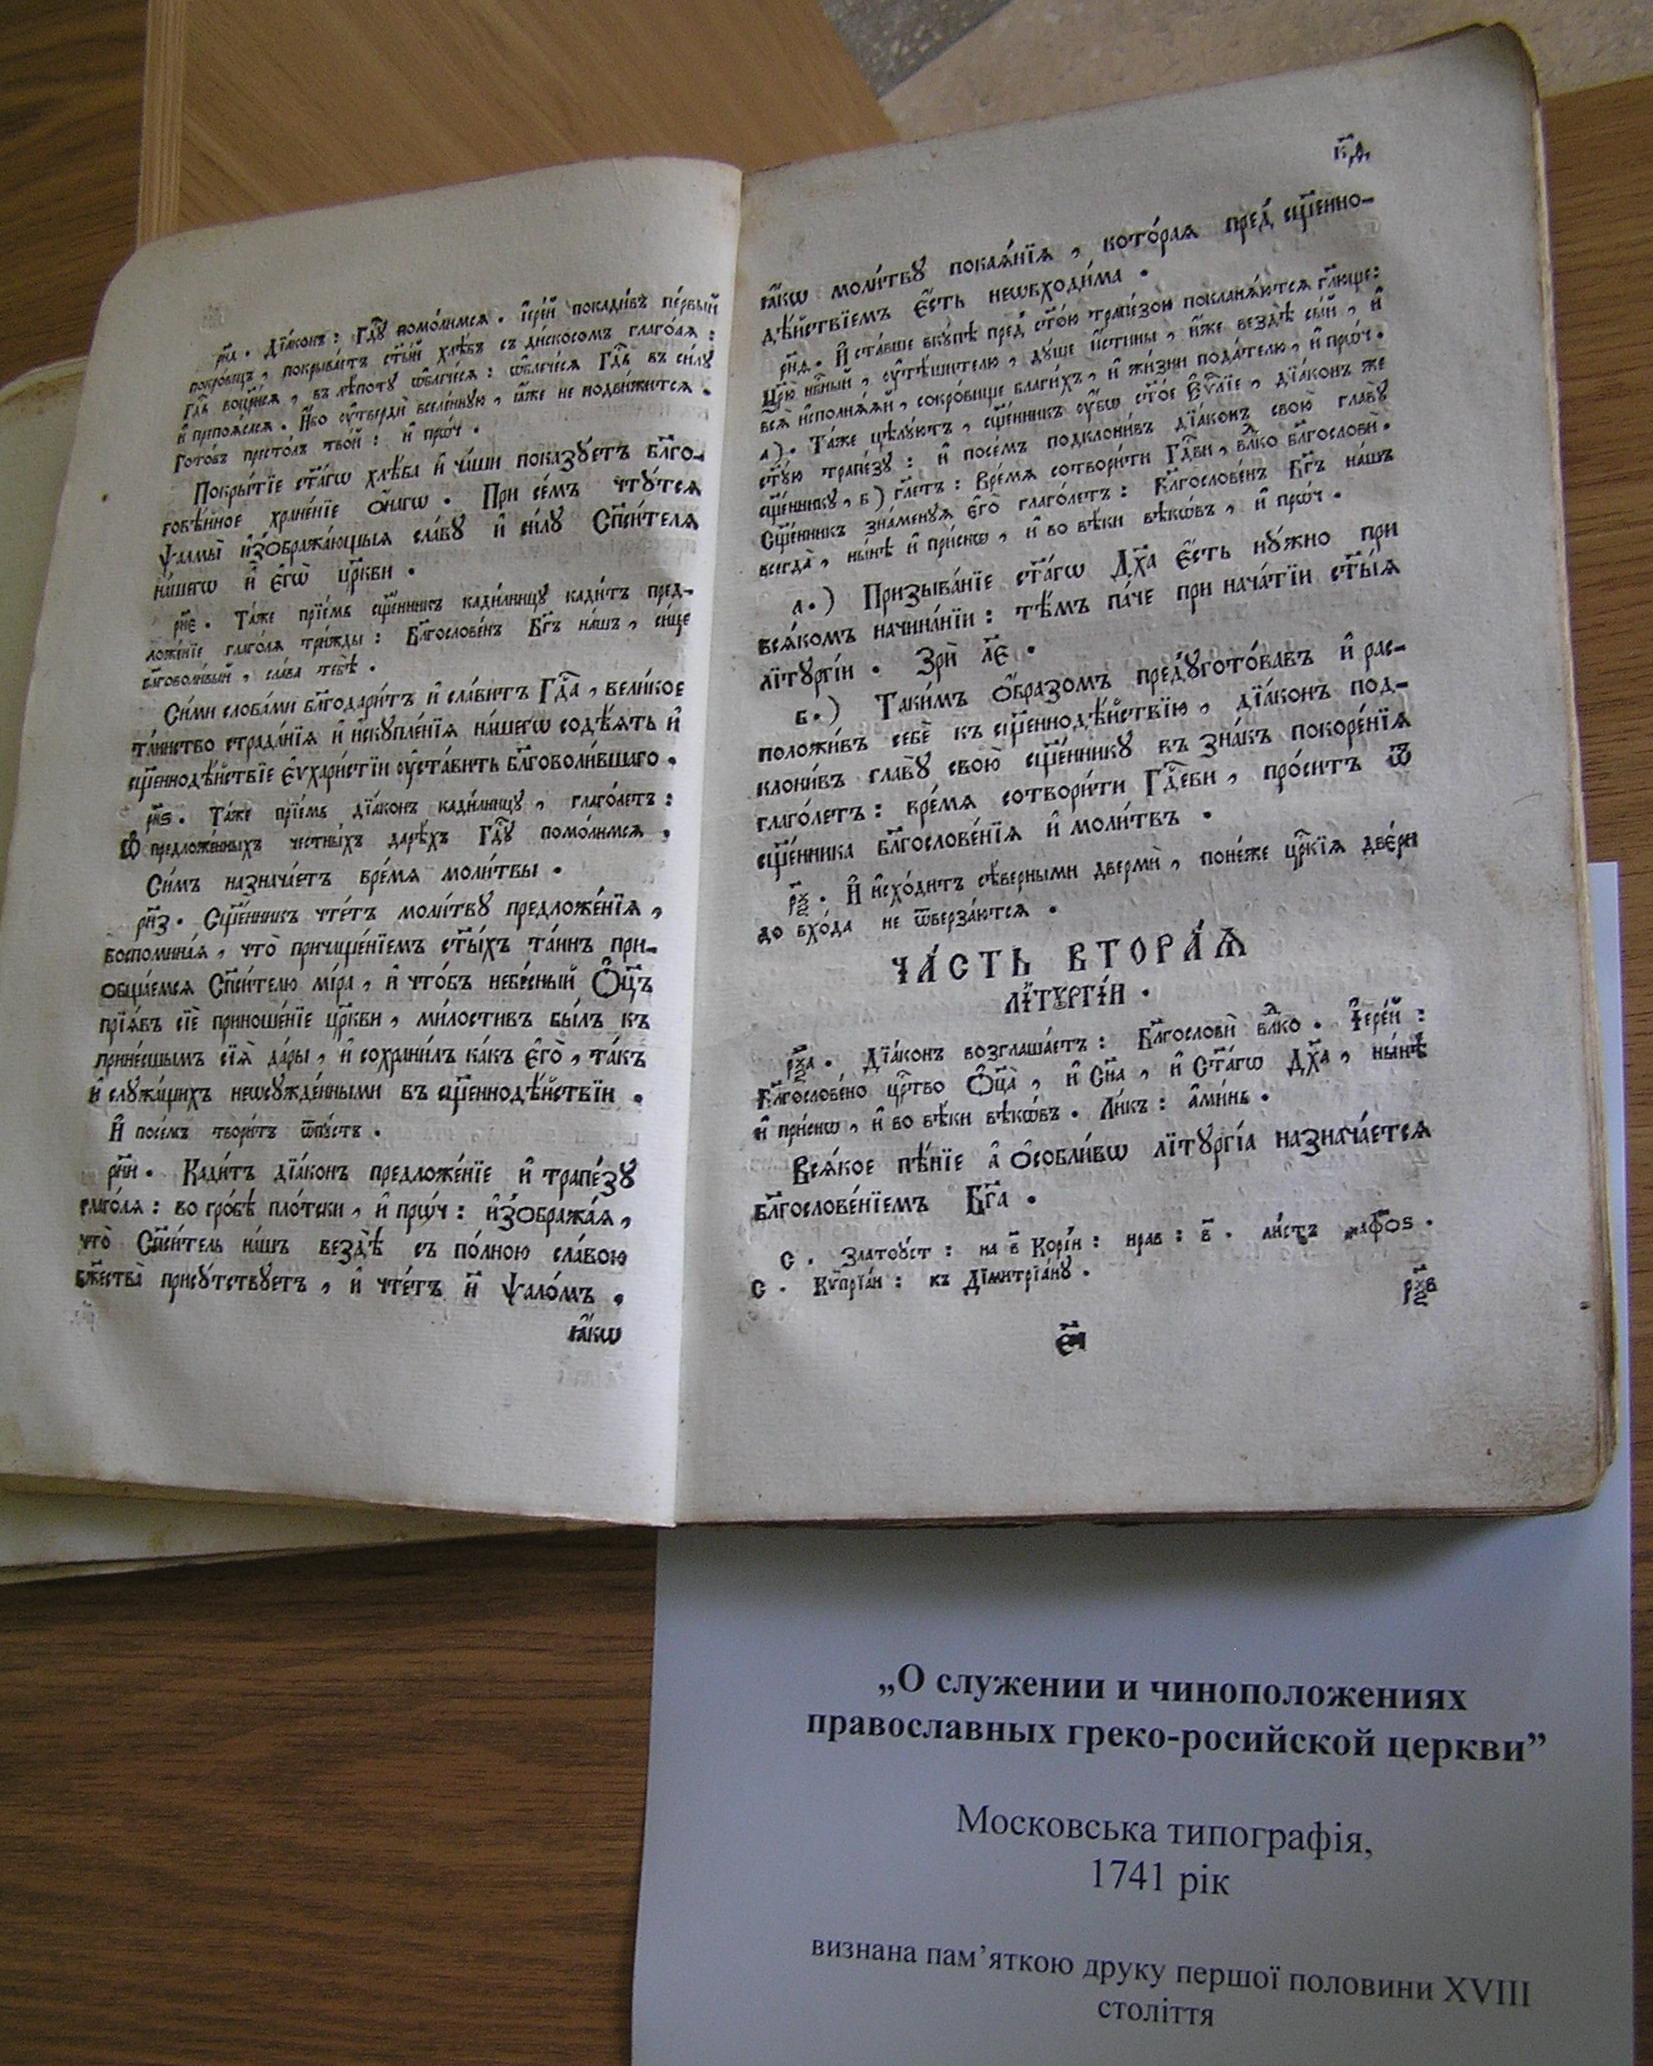 рн҃д. Дїа́конъ: Гдⷭ҇ꙋ помо́лимсѧ. І҆ере́й покади́въ пе́рвый
покро́вецъ, покрыва́етъ ст҃ы́й хлѣ́бъ съ ди́скосомъ глаго́лѧ:
Гдⷭ҇ь воцр҃и́сѧ, въ лѣ́потꙋ ѡ҆блече́сѧ: ѡ҆блече́сѧ Гдⷭ҇ь въ си́лꙋ
и҆ препоѧ́сасѧ. И҆́бо ᲂу҆твердѝ вселе́ннꙋю, ꙗ҆́же не подви́житсѧ.
Гото́въ престо́лъ тво́й: и҆ прѡ́ч.
Покры́тїе ст҃а́гѡ хлѣ́ба и҆ ча́ши показꙋетъ бл҃го-
говѣ́йное хране́нїе ѻ҆́нагѡ. При се́мъ чтꙋ́тсѧ
ѱалмы̀ и҆зѻбража́ющыѧ сла́вꙋ и҆ си́лꙋ Сп҃си́телѧ
на́шегѡ и҆ є҆гѡ̀ цр҃кви.
рн҃є. Та́же прїе́мъ сщ҃е́нникъ кади́лницꙋ кади́тъ пред-
ложе́нїе глаго́лѧ три́жды: Бл҃гослове́нъ Бг҃ъ на́шъ, си́це
бл҃говоли́вый, сла́ва тебѣ̀.
Си́ми слова́ми бл҃годари́тъ и҆ сла́витъ Гдⷭ҇а, вели́кое
та́инство страда́нїѧ и҆ и҆скꙋпле́нїѧ на́шегѡ содѣ́ѧть и҆
сщ҃еннодѣ́йствїе є҆ѵхари́стїи ᲂу҆ста́вить бл҃говоли́вшаго.
рн҃ѕ. Та́же прїе́мь дїа́конъ кади́лницꙋ, глаго́летъ:
Ѡ҆ предложе́нныхъ че́стныхъ дарѣ́хъ Гдⷭ҇ꙋ помо́лимсѧ.
Си́мъ назнача́етъ вре́мѧ моли́твы.
рн҃з. Сщ҃е́нникъ чте́тъ моли́твꙋ предложе́нїѧ,
воспомина́ѧ, что̀ причаще́нїемъ ст҃ы́хъ та́инъ при-
ѻбща́емсѧ Сп҃си́телю мі́ра, и҆ что́бъ небе́сный Ѻ҆ц҃ъ
прїѧ́въ сїѐ приноше́нїе цр҃кви, ми́лостивъ бы́лъ къ
прине́сшымъ сїѧ̀ да́ры, и҆ сохрани́лъ ка́къ є҆го̀, та́къ
и҆ слꙋжа́щихъ неѡсꙋжде́нными въ сщ҃еннодѣ́йствїи.
И҆ посе́мъ твори́тъ ѿпꙋ́стъ.
рн҃и. Кади́тъ дїа́конъ предложе́нїе и҆ трапе́зꙋ
глаго́лѧ: во гро́бѣ пло́тски, и҆ прѡ́ч: и҆зѻбража́ѧ,
что̀ Сп҃си́тель на́шъ вездѣ̀ съ по́лною сла́вою
бж҃ества̀ присꙋ́тствꙋетъ, и҆ чте́тъ н҃ ѱало́мъ.
ꙗ҆́кѡ
к҃д.
ꙗ҆́кѡ моли́твꙋ покаѧ́нїѧ, кото́раѧ пред̾ сщ҃енно-
дѣ́йствїемъ є҆́сть неѡбходи́ма.
рн҃ѳ. И҆ ста́вше вкꙋ́пѣ пред̾ ст҃о́ю трапе́зою покланѧ́ютсѧ гл҃юще:
Цр҃ю̀ нбⷭ҇ный, ᲂу҆тѣ́шителю, дꙋ́ше и҆́стины, и҆́же вездѣ̀ сы́й, и҆
всѧ̀ и҆сполнѧ́ѧй, сокро́вище благи́хъ, и҆ жи́зни пода́телю, и҆ прѡ́ч.
а) Та́же цѣлꙋ́ютъ, сщ҃е́нникъ ᲂу҆́бѡ ст҃о́е Є҆ѵⷢ҇лїе, дїа́конъ же
ст҃ꙋ́ю трапе́зꙋ: и҆ посе́мъ подклони́въ дїа́конъ свою̀ главꙋ̀
сщ҃е́нникꙋ, б) гл҃етъ: Вре́мѧ сотвори́ти Гдⷭ҇ви, влⷣко благословѝ.
Сщ҃е́нникъ зна́менꙋѧ є҆го̀ глаго́летъ: Бл҃гослове́нъ Бг҃ъ на́шъ
всегда̀, ны́нѣ и҆ при́снѡ, и҆ во вѣ́ки вѣкѡ́въ, и҆ прѡ́ч.
а.) Призыва́нїе ст҃а́гѡ Дх҃а є҆́сть нꙋ́жно при
всѧ́комъ начина́нїи: тѣ́мъ па́че при нача́тїи ст҃ы́ѧ
лїтꙋргі́и. Зрѝ л҃є.
б.) Таки́мъ ѻ҆́бразомъ предꙋгото́вавъ и҆ рас-
положи́въ себѐ къ сщ҃еннодѣ́йствїю, дїа́конъ под-
клони́въ главꙋ̀ свою̀ сщ҃е́нникꙋ въ зна́къ покоре́нїѧ
глаго́летъ: вре́мѧ сотвори́ти Гдⷭ҇еви, про́ситъ ѿ
сщ҃е́нника бл҃гослове́нїѧ и҆ моли́твъ.
рѯ҃. И҆ и҆схо́дитъ сѣ́верными двермѝ, поне́же цр҃кїѧ две́ри
до вхо́да не ѿверза́ютсѧ.
ЧА́СТЬ ВТОРА́Ѧ
ЛЇТꙊРГІ́И.
рѯ҃а. Дїа́конъ возглаша́етъ: Бл҃гословѝ влⷣко. І҆ере́й:
Бл҃гослове́но црⷭ҇тво Ѻ҆ц҃а̀, и҆ Сн҃а, и҆ Ст҃а́гѡ Дх҃а, ны́нѣ
и҆ при́снѡ, и҆ во вѣ́ки вѣкѡ́въ. Ли́къ: а҆ми́нь.
Всѧ́кое пѣ́нїе а҆ ѻ҆собли́вѡ лїтꙋргі́а назнача́етсѧ
бл҃гослове́нїемъ Бг҃а.
С. Златоꙋст: на в҃ Корі́н: нрав: в҃. ли́стъ ҂афѻѕ.
С. Кѷпрїа́н: къ Дїмитрїа́нꙋ.
рѯ҃в
є҃і
„О служении и чиноположениях
православных греко-росийской церкви”
Московська типографія,
1741 рік
визнана пам’яткою друку першої половини XVIII
століття